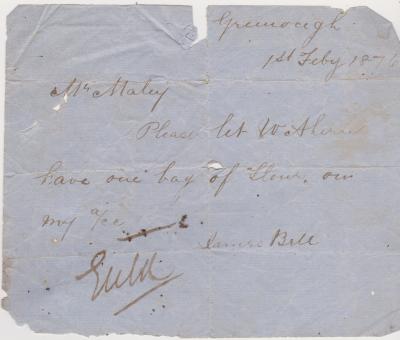 Greenough
1st Feby 187
Mr Maley
Please let W Ahern
have one bag of Flour, on
my a/cc
James Bell